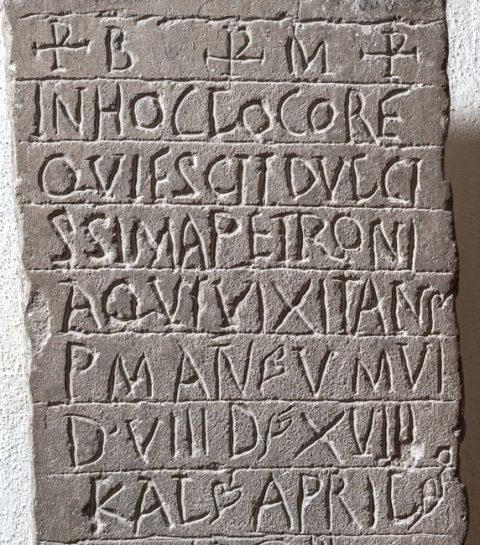 ⳨ B ⳨ M ⳨
INHOCLOCORE
QVIESCITDVLCI
SSIMAPETRONI
AQVIVIXITANN
PM AN V MVI
D VIII D XVIII
KAL APRIL